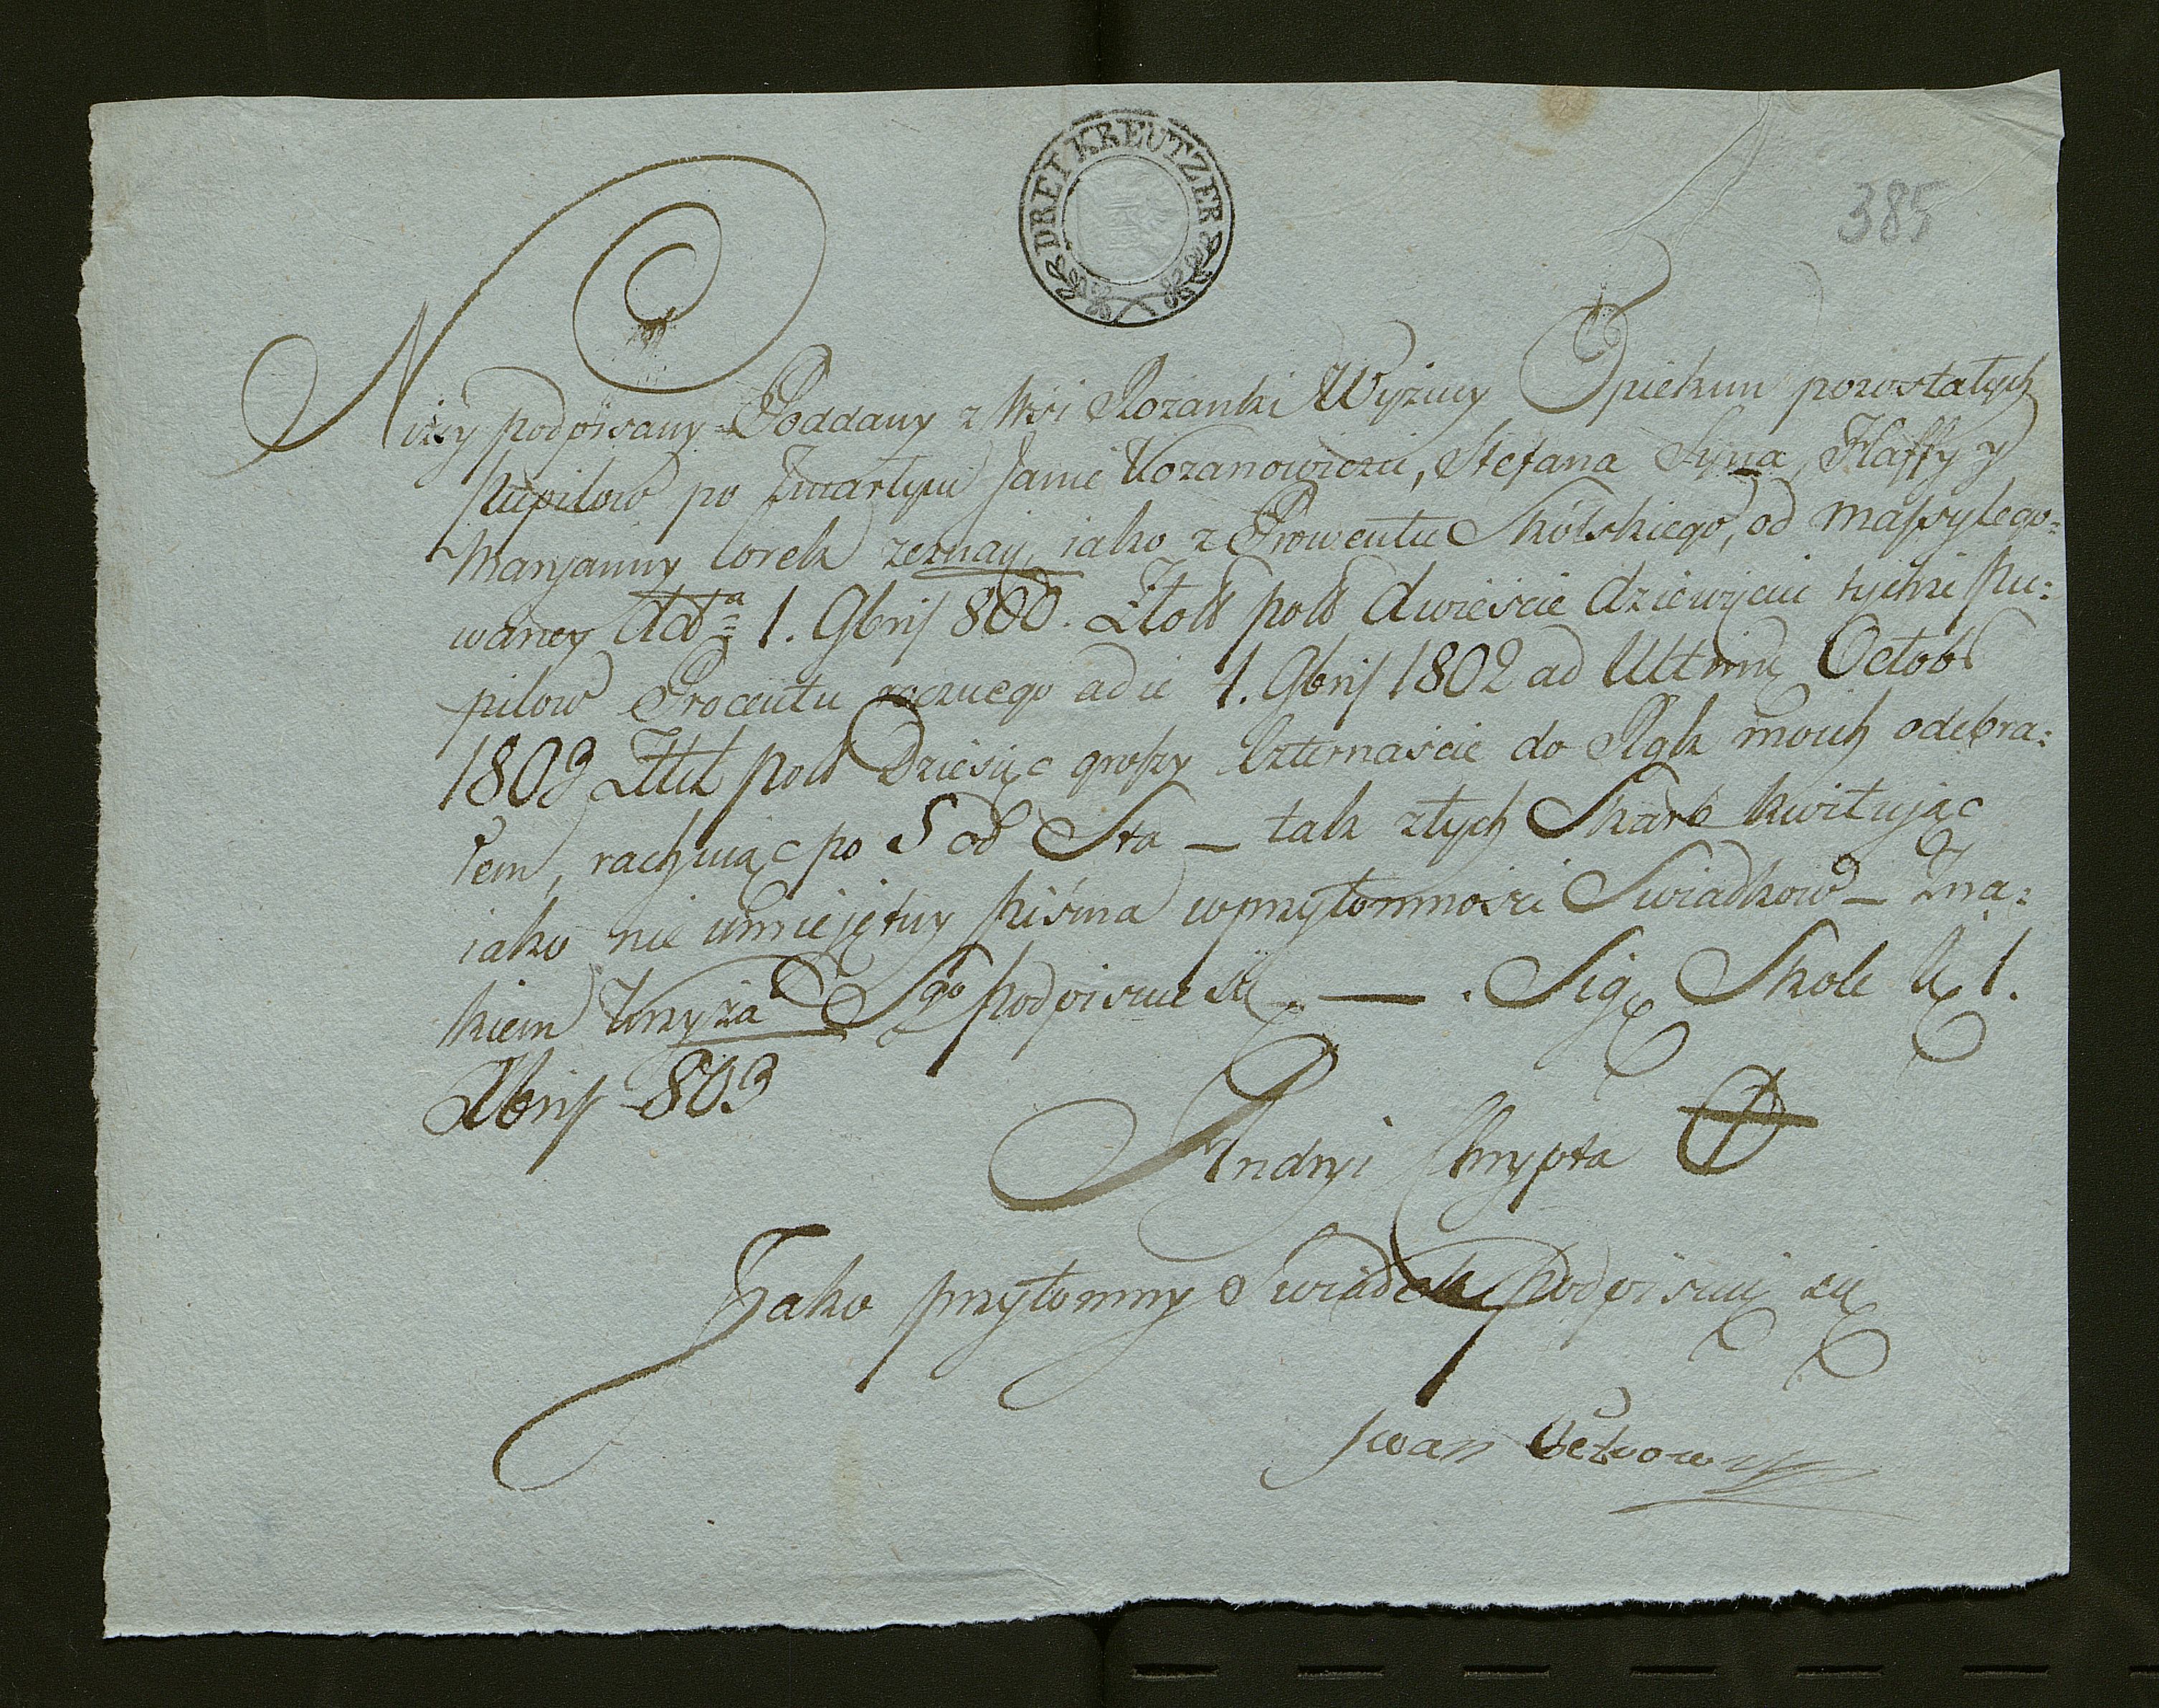 DREI KREUTZER
385
Niżey podpisany Poddany z Wsi Rozanki Wyżney Opiekun pozostałych
Pupilow po Zmarłym Janie Kozanowiczu, Stefana Syna, Haffy y
Maryanny Corek zeznaię, iako z Prowentu Skolskiego, od massy lego=
waney ddtа 1. 9bris 800. Złott pols dwieście dziewięciu tychże Pu=
pilow Procentu rocznego a die 1. 9bris 1802 ad Ultimą Octobs
1803 Złtt pols Dziesięć groszy Czternaście do Rąk moich odebra=
łem, rachuiąc po 5 od Sta _ tak z tych Skarb kwitując
iako nie umiejętny pisma w przytomności Swiadkow _ Zna=
kiem Krzyża Sgo podpisuie się _ . Sig. Skole d. 1.
Xbris 803
Andryi Chrypta
Jako przytomny Swiadek podpisuię się
Iwan